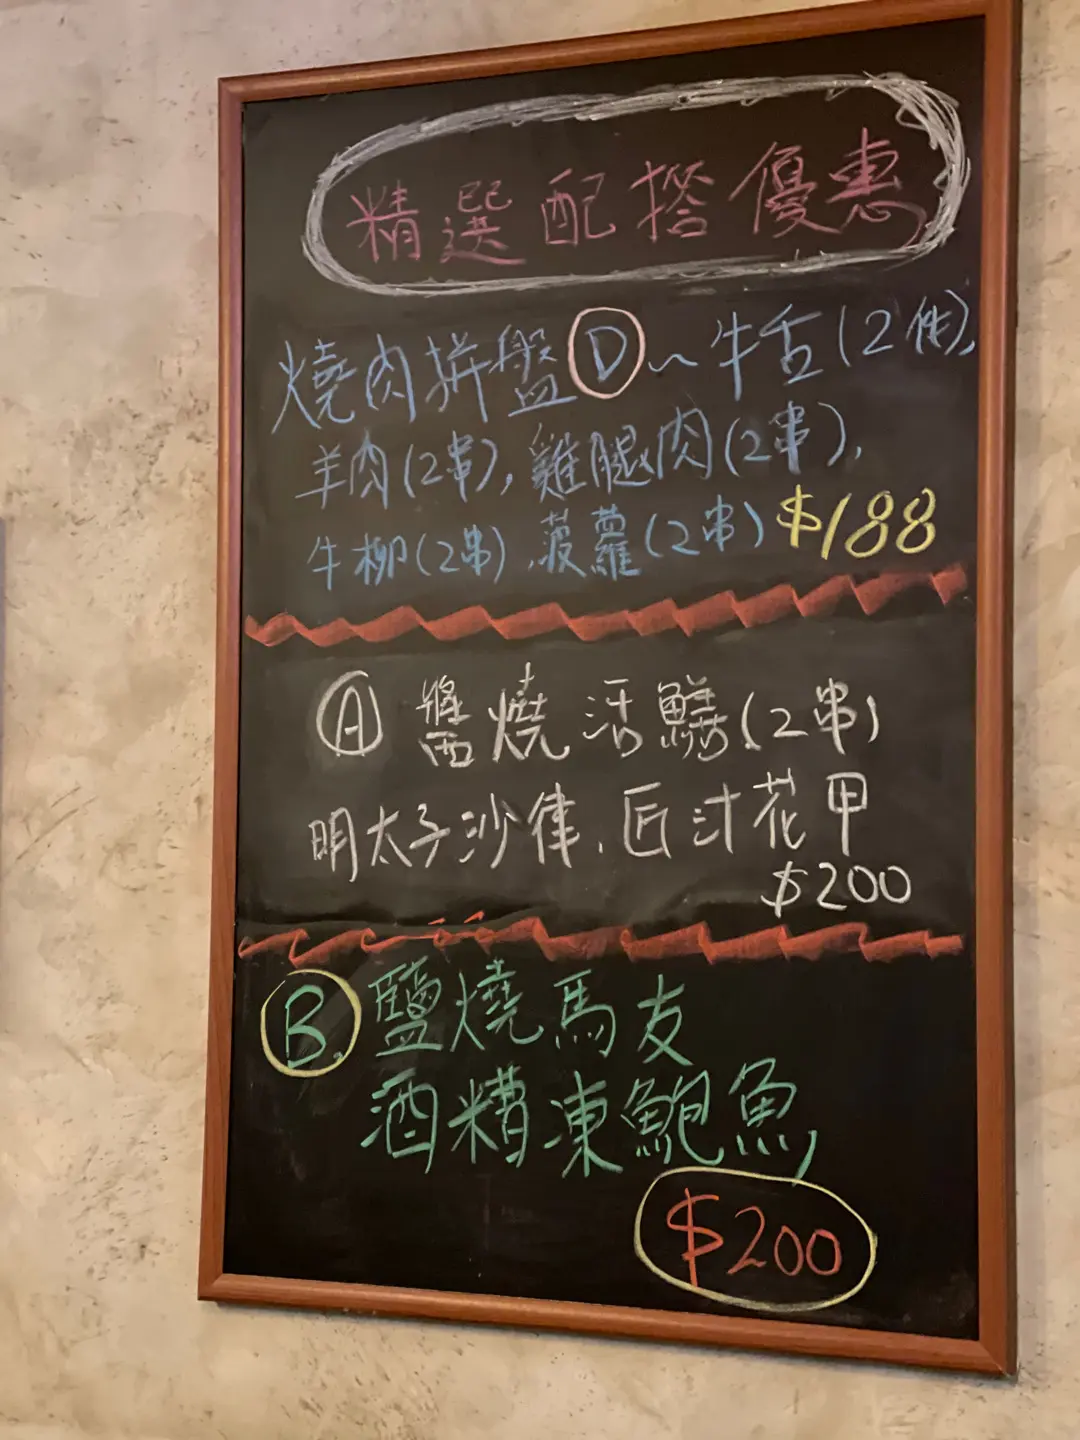 精選配搭優惠
燒肉拼盤 D ~ 牛舌(2件),
羊肉(2串), 雞腿肉(2串),
牛柳(2串), 菠蘿(2串) $188
A 醬燒活鱔(2串)
明太子沙律, 匠汁花甲
$200
B. 鹽燒馬友
酒糟凍鮑魚
$200